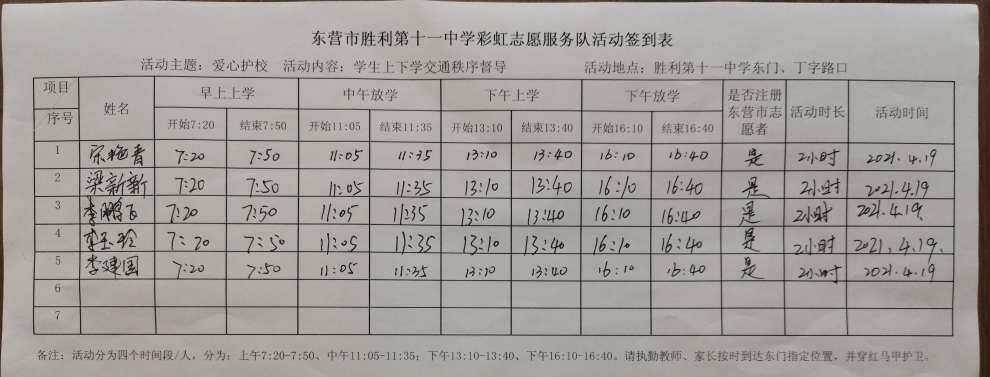 东营市胜利第十一中学彩虹志愿服务队活动签到表
活动主题：爱心护校 活动内容：学生上下学交通秩序督导 活动地点：胜利第十一中学东门、丁字路口
项目 序号 姓名 早上上学 中午放学 下午上学 下午放学 是否注册东营市志愿者 活动时长 活动时间
开始7:20 结束7:50 开始11:05 结束11:35 开始13:10 结束13:40 开始16:10 结束16:40
1 宋艳香 7:20 7:50 11:05 11:35 13:10 13:40 16:10 16:40 是 2小时 2021.4.19
2 梁新新 7:20 7:50 11:05 11:35 13:10 13:40 16:10 16:40 是 2小时 2021.4.19
3 李鹏飞 7:20 7:50 11:05 11:35 13:10 13:40 16:10 16:40 是 2小时 2021.4.19.
4 李玉玲 7:20 7:50 11:05 11:35 13:10 13:40 16:10 16:40 是 2小时 2021.4.19.
5 李建国 7:20 7:50 11:05 11:35 13:10 13:40 16:10 16:40 是 2小时 2021.4.19
6
7
备注：活动分为四个时间段/人，分为：上午7:20-7:50、中午11:05-11:35；下午13:10-13:40、下午16:10-16:40。请执勤教师、家长按时到达东门指定位置，并穿红马甲护卫。